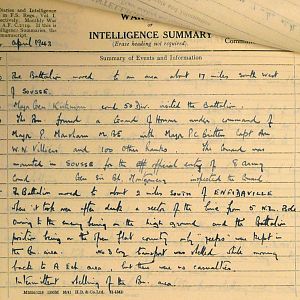 Diaries and Intelligence
in F.S. Regs., Vol. I.
Monthly War
A.F. C.2119. If this is
telligence Summaries, the
manuscript.
WAR
INTELLIGENCE SUMMARY
(Erase heading not required).
April 1943
Summary of Events and Information
The Battalion moved to an area about 17 miles south west
of SOUSSE.
Major Gen Kirkman comd 50 Div. visited the Battalion.
The Bn found a Guard of Honour under command of
Major P. Marsham M.B.E with Major P.C. Britten Capt
W.N. Villiers and 100 other Ranks. The Guard was
mounted in SOUSSE for the official entry of 8 Army
Comd. Gen Sir B.L. Montgomery inspected the Guard
The Battalion moved to about 2 miles SOUTH of ENFIDAVILLE
then it took over after dark a sector of the line from 5 N.Z. Bde
Owing to the enemy being on the high ground and the Battalion
position being on the open flat country only "jeeps" was kept in
the Bn. area. Coy transport was shelled while moving
back to A Ech area but there were no casualties.
Intermittent shelling of the Bn. area.